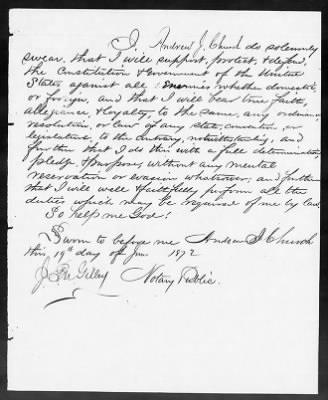 I, Andrew J. Church do solemnly
swear that I will support, protect, & defend,
the Constitution & Government of the United
States against all Enemies, whether domestic,
or foreign, and that I will bear true faith,
allegiance, & loyalty, to the same, any ordinance,
resolution, or law of any state, convention, or
legislature, to the contrary, notwithstanding, and
further that I do this with a full determination,
pledge & purpose, without any mental
reservation or evasion whatsoever, and further
that I will well & faithfully perform all the
duties which may be required of me by law.
So help me God!
Sworn to before me Andrew J. Church
this 19th day of Jan 1872
Notary Public